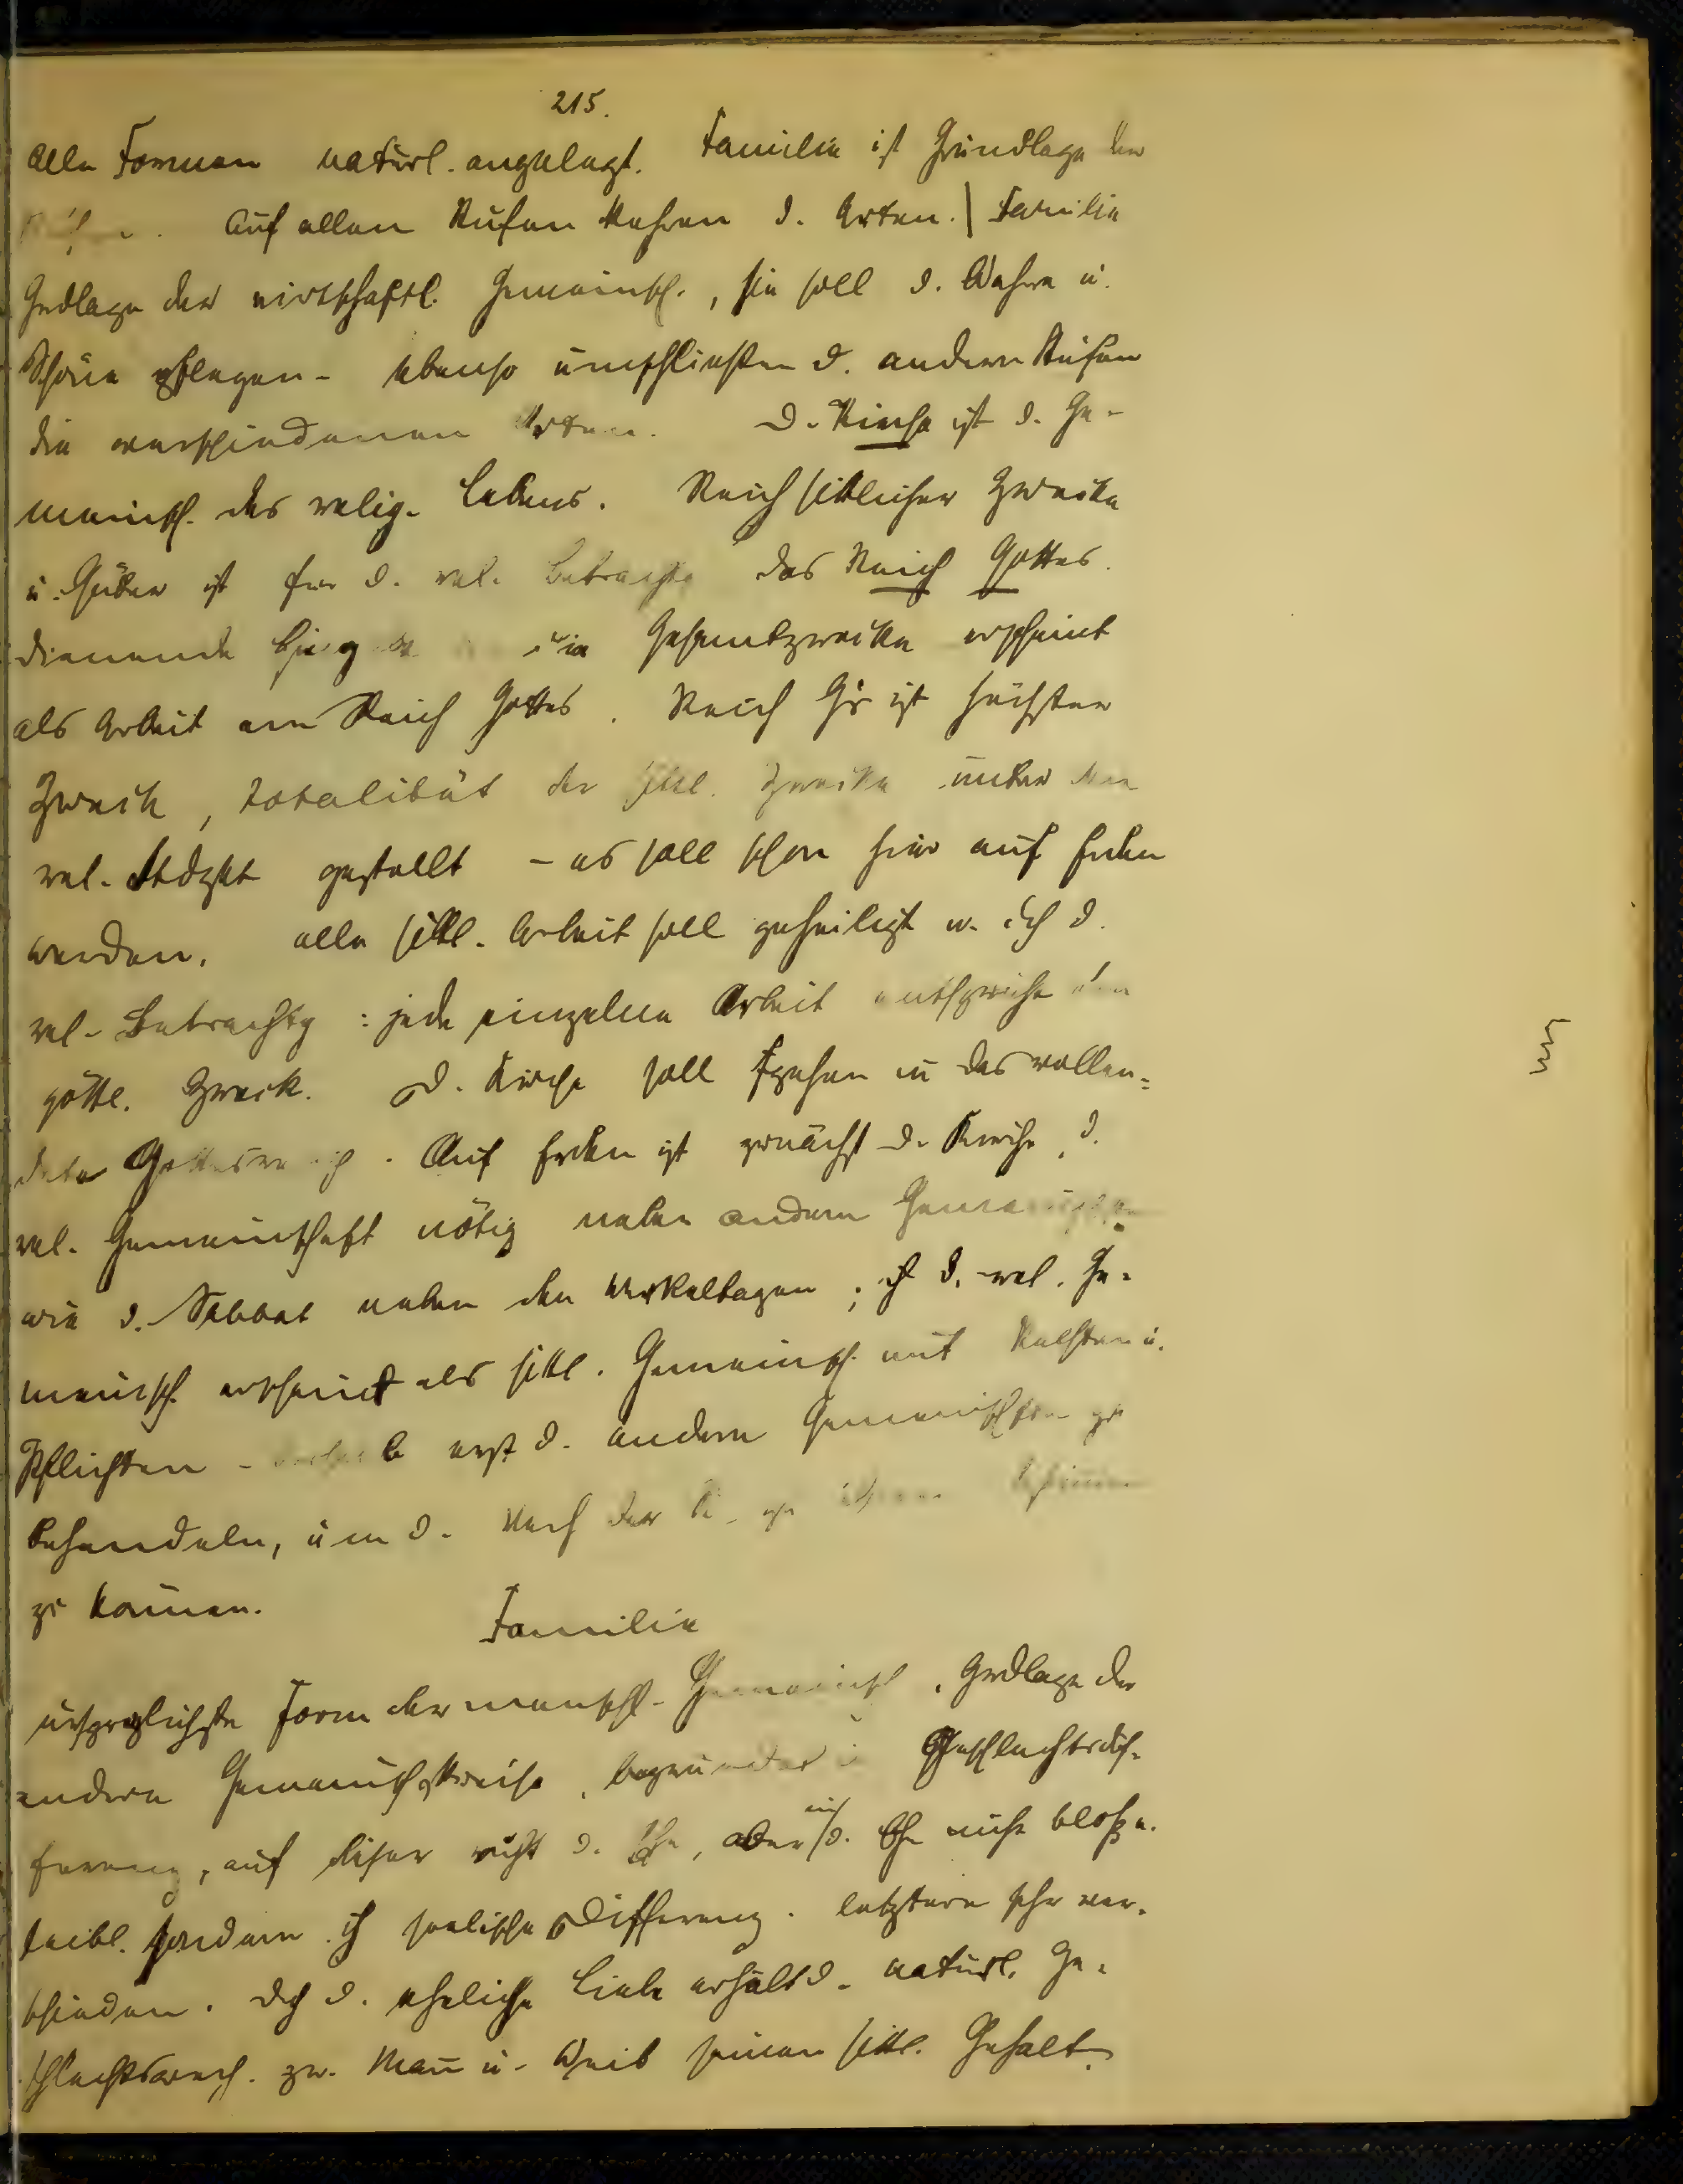 215.
alle Formen natürl. angelegt. Familie ist Grundlage der
Auf allen Stufen kehren d. Arten. | Familie
Grdlage der wirtschaftl. Gemeinsch., sie soll d. Wahre u.
Schöne pflegen - ebenso umschließen d. andern Stufen
die verschiedenen Arten. D. Kirche ist d. Ge-
meinsch. des relig. Lebens. Reich sittlicher Zwecke
u. Güter ist für d. rel. Betrachtg das Reich Gottes.
dienende Gesamtzwecke erscheint
als Arbeit am Reich Gottes. Reich Gs ist höchster
Zweck, Totalität der sittl. Zwecke unter den
rel. Stdpkt gestellt - es soll schon hier auf Erden
werden. alle sittl. Arbeit soll geheiligt w. dch d.
rel. Betrachtg : jede einzelne Arbeit entspreche dem
göttl. Zweck. D. Kirche soll in das vollen-
dete Gottesreich. Auf Erden ist zunächst d. Kirche, d.
rel. Gemeinschaft nötig neben andern
wie d. Sabbat neben den Werkeltagen; d. rel. Ge-
meinsch. erscheint als sittl. Gemeinsch. mit Rechten u.
Pflichten - deshalb erst d. andern Gemeinschften zu
behandeln, um d. der
zu können.
Familie
ursprglichste Form der menschl. Gemeinsch, Grdlage der
andern Gemeinschskreise, begründet Geschlechtsdif-
ferenz, auf dieser ruht d. Ehe, aber d. Ehe nicht bloße.
leibl. sondern seelische Differenz. letztere sehr ver-
schieden. Dch d. eheliche Liebe erhält d. natürl. Ge-
schlechtsverh. zw. Mann u. Weib seinen sittl. Gehalt.